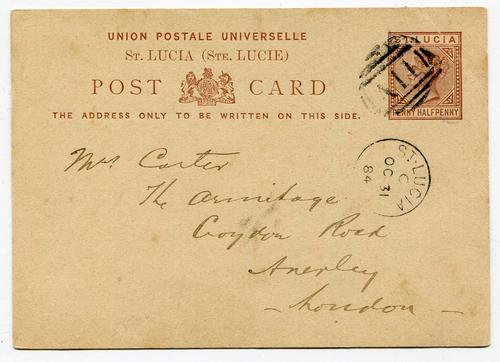 UNION POSTALE UNIVERSELLE
ST. LUCIA (STE. LUCIE)
POST CARD
THE ADDRESS ONLY TO BE WRITTEN ON THIS SIDE.
ST. LUCIA
PENNY HALFPENNY
A11
ST. LUCIA
C
OC 31
84
Mrs Carter
The Armitage
Croydon Road
Anerley
London